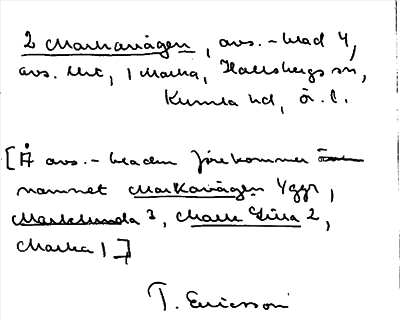 2 Markavägen, avs.-blad 4,
avs. utt, 1 Marka, Hallsbergs sn,
Kumla hd, Ö. l.
[Å avs.-bladen förekommer
namnet Markavägen 4 ggr,
Marklunda 3, Marka Lilla 2,
Marka 1]
T. Ericsson